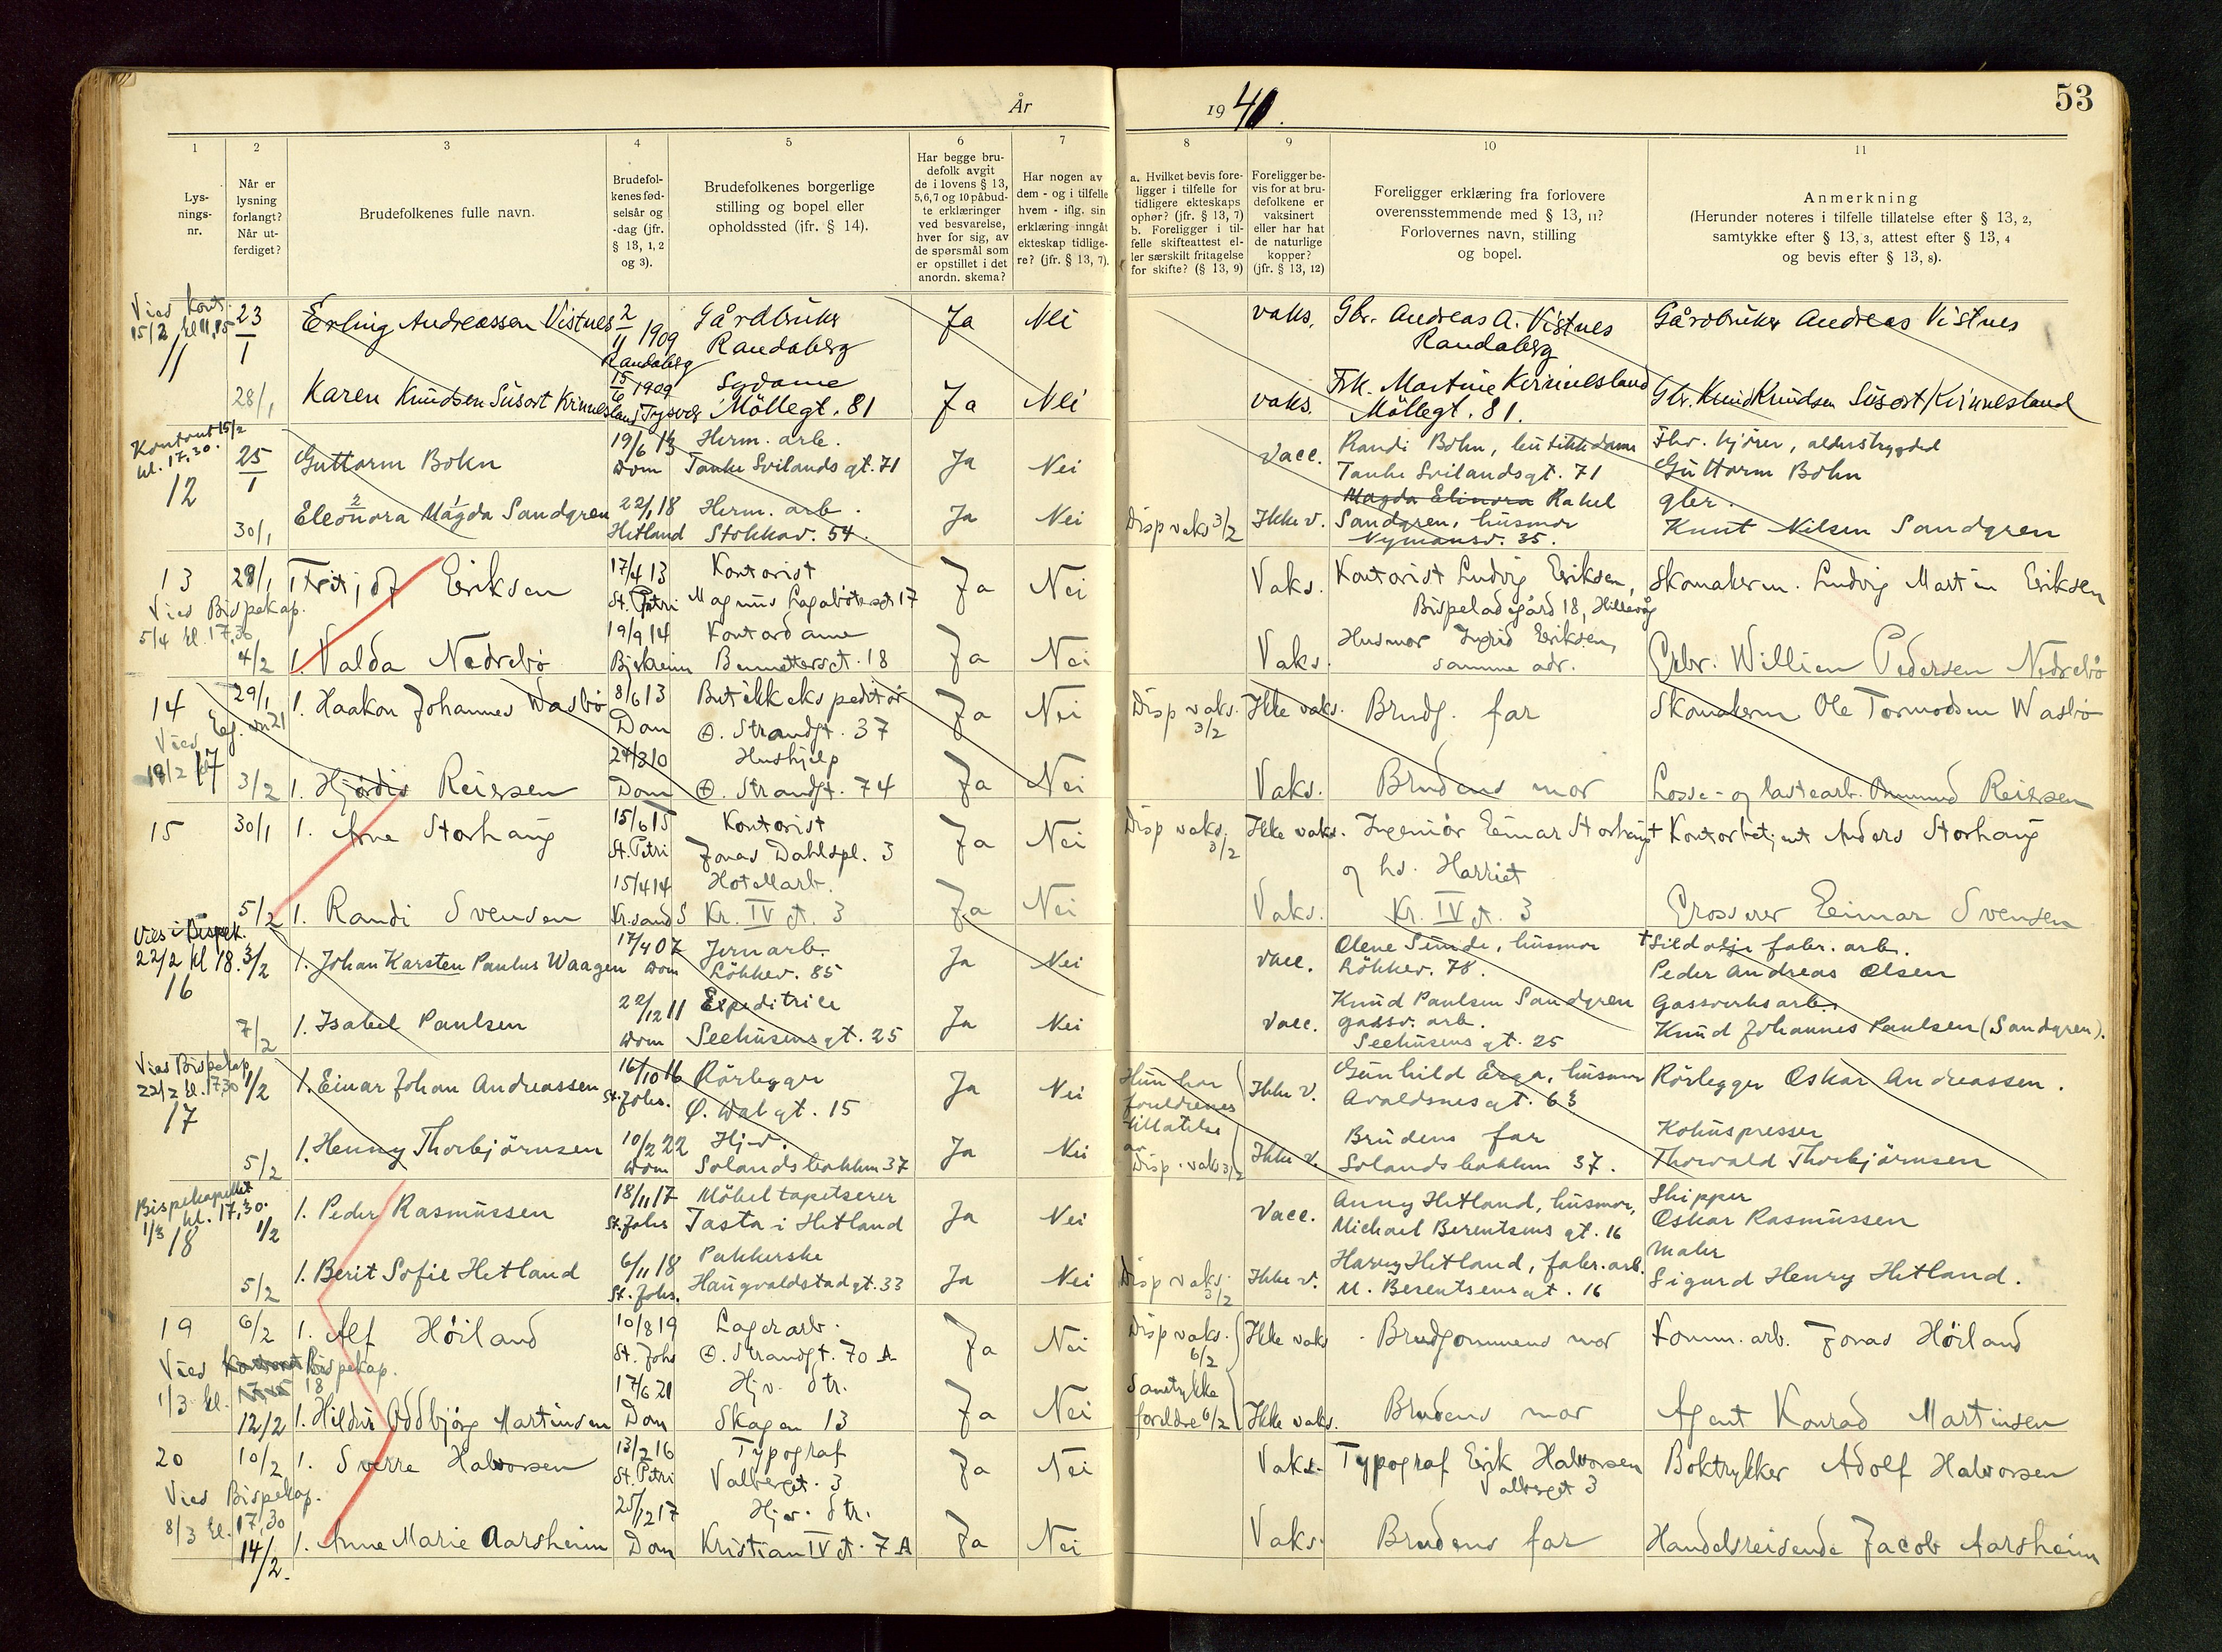 År
1941.
53
1
2
3
4
5
6
7
8
9
10
11
Lys-
nings-
nr.
Når er
lysning
forlangt?
Når ut-
ferdiget?
Brudefolkenes fulle navn.
Brudefol-
kenes fød-
selsår og
-dag (jfr.
§ 13, 1, 2
og 3).
Brudefolkenes borgerlige
stilling og bopel eller
opholdssted (jfr. § 14).
Har begge bru-
defolk avgit
de i lovens § 13,
5,6,7 og 10 påbud-
te erklæringer
ved besvarelse,
hver for sig, av
de spørsmål som
er opstillet i det
anordn. skema?
Har nogen av
dem - og i tilfelle
hvem - iflg. sin
erklæring inngåt
ekteskap tidlige-
re? (jfr. § 13, 7).
a. Hvilket bevis fore-
ligger i tilfelle for
tidligere ekteskaps
ophør? (jfr. § 13, 7)
b. Foreligger i til-
felle skifteattest el-
ler særskilt fritagelse
for skifte? (§ 13, 9)
Foreligger be-
vis for at bru-
defolkene er
vaksinert
eller har hat
de naturlige
kopper?
(jfr. § 13, 12)
Foreligger erklæring fra forlovere
overensstemmende med § 13, 11?
Forlovernes navn, stilling
og bopel.
Anmerkning
(Herunder noteres i tilfelle tillatelse efter § 13, 2,
samtykke efter § 13, 3, attest efter § 13, 4
og bevis efter § 13, 8).
Vies Kont.
15/2 kl 11,85
11
23/1
Erling Andreassen Vistnes
2/11 1909
Randaberg
Gårdbruker
Randaberg
Ja
Nei
vaks.
Gbr. Andreas A. Vistnes
Randaberg
Gårdbruker Andreas Vistnes
28/1
Karen Knudsen Susort Kinnesland
15/6 1909
Tysvær
Sydame
Möllegt. 81
Ja
Nei
vaks.
Frk. Martine Kinnesland
Möllegt. 81.
Gbr. Knud Knudsen Susort/Kinnesland
Kontoret 15/2
kl. 17,30.
12
25/1
Guttorm Bohn
19/6 13
Dom
Herm. arb.
Tanke Svilandsgt. 71
Ja
Nei
vacc.
Randi Bohn, butikkdame
Tanke Svilandsgt. 71
Fhv. kjører, alderstrygded
Guttorm Bohn
30/1
2 1
Eleonora Magda Sandgren
22/1 18
Hetland
Herm. arb.
Stokkav. 54.
Ja
Nei
Disp vaks 3/2
Ikke v.
Magda Elinora Rakel
Sandgren, husmor
Nymansv. 35.
gbr.
Knut Nilsen Sandgren
13
Vies Bispekap.
5/4 kl. 17,30
28/1
Fritjof Eriksen
17/4 13
St. Petri
Kontorist
Magnus Lagabøtersgt 17
Ja
Nei
Vaks.
Kontorist Ludvig Eriksen,
Bispeladegård 18, Hillevåg
Skomakerm. Ludvig Martin Eriksen
4/2
1. Valda Nedrebö
19/9 14
Bjerkreim
Kontordame
Bennettersgt. 18
Ja
Nei
Vaks.
Husmor Ingrid Eriksen,
samme adr.
Gbr. Willien Pedersen Nedrebö
14
29/1
Vies
18/2 kl 17
1. Haakon Johannes Wasbö
8/6 13
Dom
Butikkekspeditör
Ø. Strandgt. 37
Ja
Nei
Disp vaks.
3/2
Ikke vaks.
Brudg. far
Skomakerm Ole Tormodsen Wasbö
3/2
1. Hjördis Reiersen
24/3 10
Dom
Hushjelp
Ø. Strandgt. 74
Ja
Nei
Vaks.
Brudens mor
Losse- og lastearb. Reiersen
15
30/1
1. Arne Storhaug
15/6 15
St. Petri
Kontorist
Jonas Dahlspl. 3
Ja
Nei
Disp vaks.
3/2
Ikke vaks.
Ingeniör Einar Storhaug
og hs. Harriet
Kr. IV gt. 3
† Kontorbetjent Anders Storhaug
5/2
1. Randi Svensen
15/4 14
Kr.sand S
Hotellarb.
Kr. IV gt. 3
Ja
Nei
Vaks.
Grosserer Einar Svensen
Vies i Bispek.
22/2 kl 18.
16
3/2
1. Johan Karsten Paulus Waagen
17/4 07
Dom
Jernarb.
Lökkev. 85
Ja
Nei
vacc.
Olene Sunde, husmor
Lökkev. 78.
† Sildolje fabr. arb.
Peder Andreas Olsen
7/2
1. Isabel Paulsen
22/12 11
Dom
Expeditrice
Seehusensgt. 25
Ja
Nei
vacc.
Knud Paulsen Sandgren
gassv. arb.
Seehusens gt. 25
Gassverksarb.
Knud Johannes Paulsen (Sandgren).
Vies Bispekap
22/2 kl. 17,30
17
1/2
1. Einar Johan Andreassen
16/10 16
St. Johs.
Rörlegger
Ø. Walgt. 15
Ja
Nei
Hun har
foreldrenes
tillatelse
Ikke v.
Gunhild Erga, husmor
Avaldsnesgt. 63
Rörlegger Oskar Andreassen.
5/2
1. Henny Thorbjörnsen
10/2 22
Dom
Hj.d.
Solandsbakken 37
Ja
Nei
Disp. vaks 3/2
Ikke v.
Brudens far
Solandsbakken 37.
Kokuspresser
Thorvald Thorbjörnsen
Bispekapellet
1/3 kl. 17,30.
18
1/2
1. Peder Rasmussen
18/11 17
St. Johs
Möbeltapetserer
Tasta i Hetland
Ja
Nei
Vacc.
Anny Hetland, husmor,
Michael Berentsens gt. 16
Skipper
Oskar Rasmussen
5/2
1. Berit Sofie Hetland
6/11 18
St. Johs.
Pakkerske
Haugvaldstadgt. 33
Ja
Nei
Disp vaks.
3/2
Ikke v.
Harry Hetland, fabr. arb.
M. Berentsensgt. 16
Maler
Sigurd Henry Hetland.
19
6/2
Vies Kontoret Bispekap.
1/3 kl. 18
1. Alf Höiland
10/8 19
St. Johs
Lagerarb.
Ø. Strandgt. 70 A
Ja
Nei
Disp vaks.
6/2
Ikke vaks
Brudgommens mor
Komm. arb. Jonas Höiland
12/2
1. Hildur Oddbjörg Martinsen
17/6 21
Dom
Hjv. dtr.
Skagen 13
Ja
Nei
Samtykke
foreldre 6/2
Ikke vaks.
Brudens mor
Agent Konrad Martinsen
20
10/2
Vies Bispekap.
8/3 kl. 17,30
1. Sverre Halvorsen
13/2 16
St. Petri
Typograf
Valberget. 3
Ja
Nei
Vaks.
Typograf Erik Halvorsen
Valberget 3
Boktrykker Adolf Halvorsen
14/2.
1. Anne Marie Aarsheim
25/12 17
Dom
Hjv. dtr.
Kristian IV gt. 7 A
Ja
Nei
Vaks.
Brudens far
Handelsreisende Jacob Aarsheim